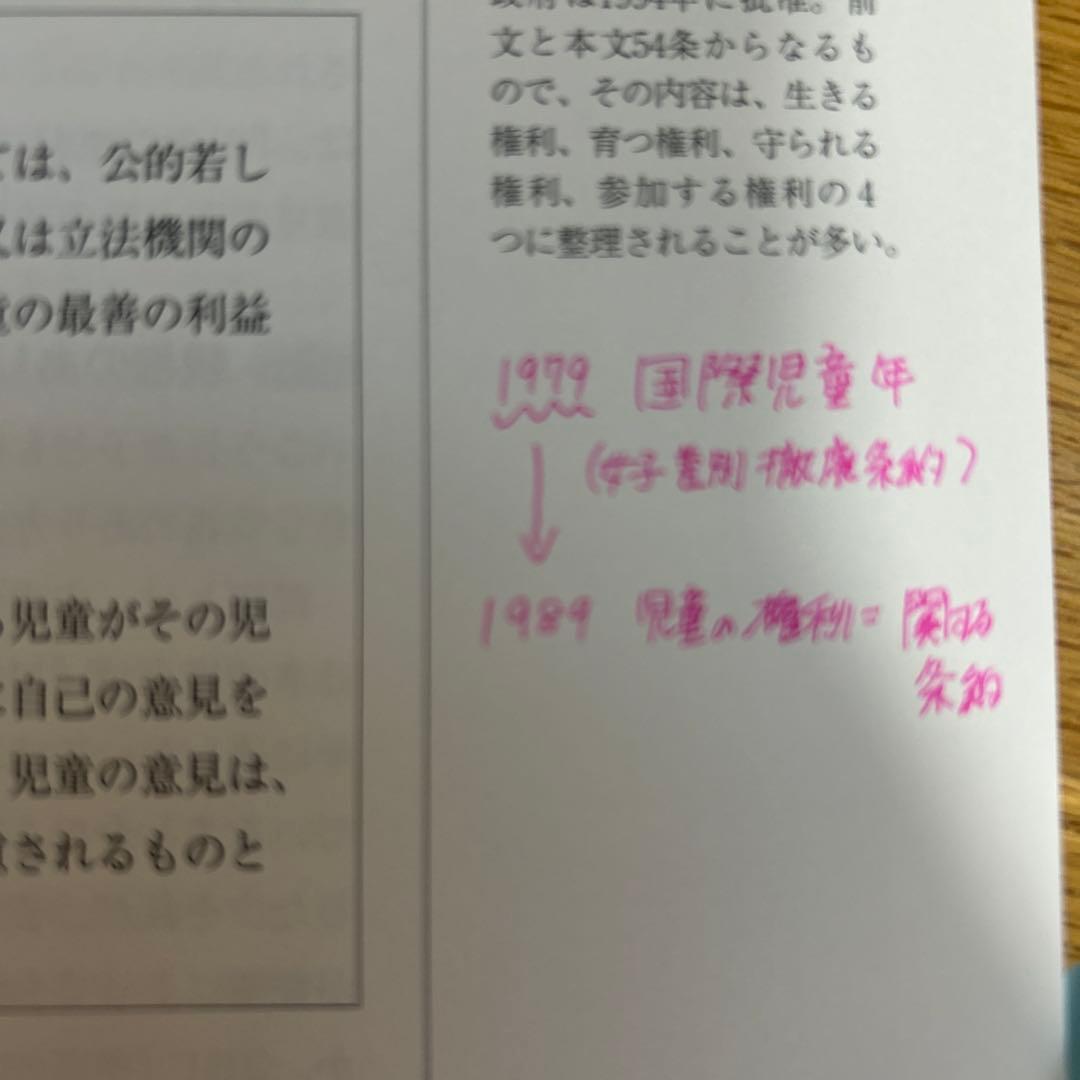 ては、公的若し
又は立法機関の
童の最善の利益
る児童がその児
に自己の意見を
児童の意見は、
慮されるものと
政府は1994年に批准。前
文と本文54条からなるも
ので、その内容は、生きる
権利、育つ権利、守られる
権利、参加する権利の4
つに整理されることが多い。
1979 国際児童年
(女子差別撤廃条約)
↓
1989 児童の権利に関する
条約